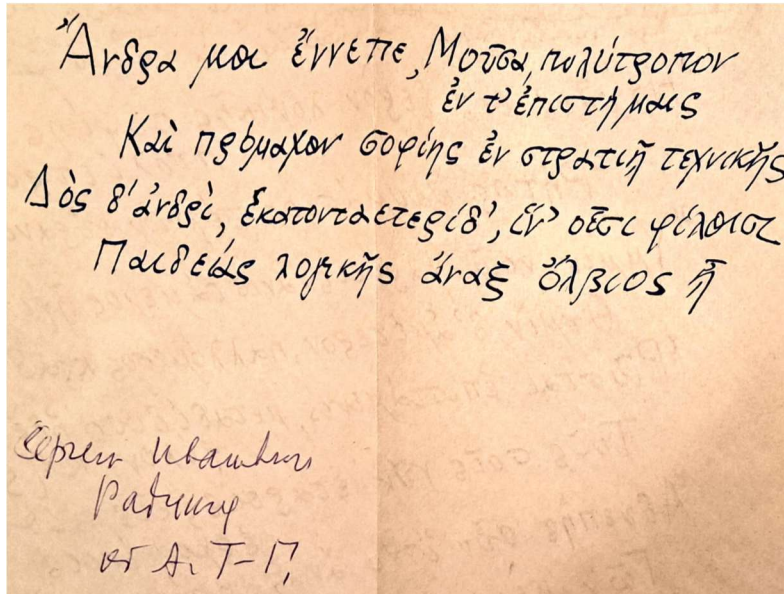 Ἄνδρα μοι ἔννεπε, Μοῦσα, πολύτροπον
ἐν τ' ἐπιστήμαις
Καὶ πρόμαχον σοφίης ἐν στρατιῇ τεχνικῆς
Δὸς δ' ἀνδρὶ, ἑκατονταετερίδ', ἵν' οἷσι φίλοισι
Παιδείας λογικῆς ἄναξ ὄλβιος ᾖ
Сергею Ивановичу
Радцигу
от А. Т-Г.